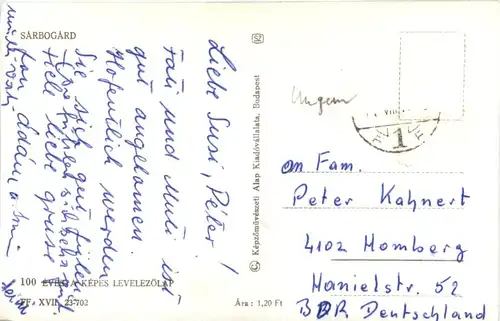 SÁRBOGÁRD
Liebe Susi, Péter!
Tati und Muti ist
gut angkomen.
Hofentlich werden
Sie sich gut fühlen
Hell liebe grüse
100 ÉVES A KÉPES LEVELEZŐLAP
FF. XVII. 23702
Ára : 1,20 Ft
© Képzőművészeti Alap Kiadóvállalata, Budapest
Ungarn
1
an Fam.
Peter Kahnert
4102 Homberg
Hanielstr. 52
BDR Deutschland